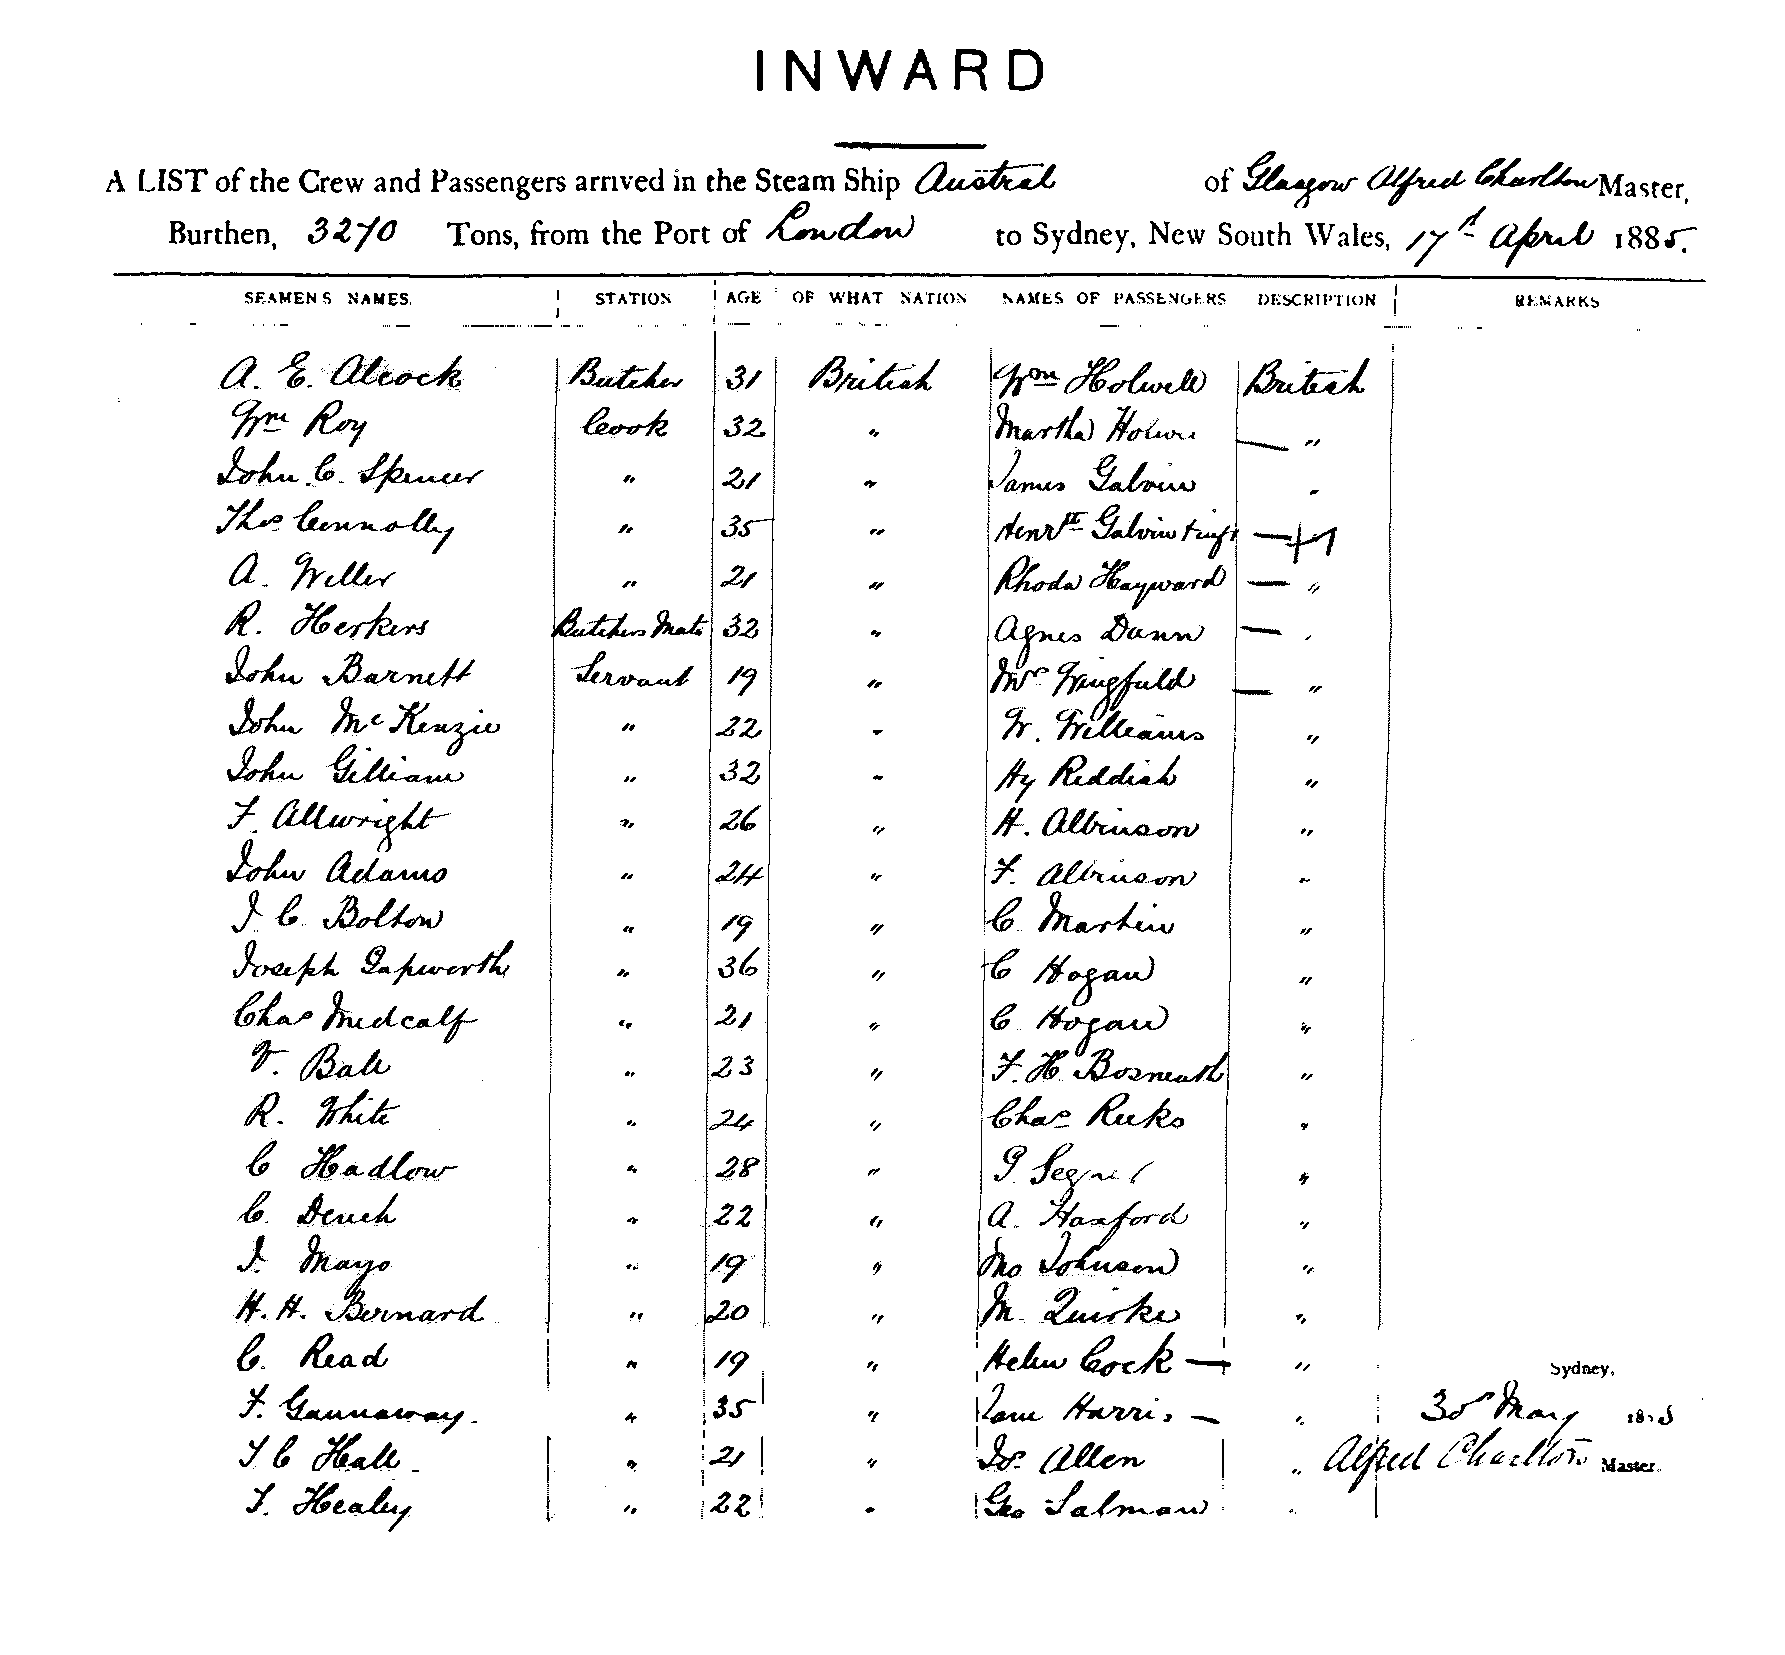 INWARD
A LIST of the Crew and Passengers arrived in the Steam Ship Austral of Glasgow Alfred Charlton Master,
Burthen, 3270 Tons, from the Port of London to Sydney, New South Wales, 17th April 1885.
SEAMENS NAMES. STATION AGE OF WHAT NATION NAMES OF PASSENGERS DESCRIPTION REMARKS
A. E. Alcock Butcher 31 British Wm Holwell British
Wm Roy Cook 32 " Martha — "
John C. Spencer " 21 " James Galvin "
Thos Connolly " 35 " Galvin
A. Weller " 21 " Rhoda Hayward — "
R. Herkers Butchers Mate 32 " Agnes Dann — "
John Barnett Servant 19 " Mrs Wingfield — "
John McKenzie " 22 " W. Williams "
John Gilliam " 32 " Hy Reddish "
F. Allwright " 26 " H. Albinson "
John Adams " 24 " F. Albinson "
J. C. Bolton " 19 " C Martin "
Joseph Papworth " 36 " C Hogan "
Chas Medcalf " 21 " C Hogan "
V. Bale " 23 " F. H. "
R. White " 24 " Chas "
C Hadlow " 28 " "
C. Dench " 22 " A. "
J. Mayo " 19 " Johnson "
H. H. Bernard " 20 " M. Quirke "
C. Read " 19 " Helen Cock — " Sydney,
F. Gannaway. " 35 " Jane Harris — " 30 May
J C Hall " 21 " Jos. Allen " Alfred Charlton Master.
J. Healey " 22 " Geo Salman "